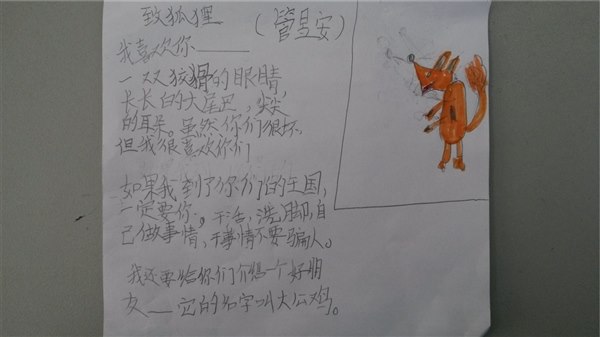 致狐狸 (管昱安)
我喜欢你——
一双狡猾的眼睛,
长长的大尾巴,尖尖
的耳朵。虽然你们很坏,
但我很喜欢你们
如果我到了你们的王国,
一定要你。干活,洗脚,自
己做事情,干事情不要骗人。
我还要给你们介绍一个好朋
友——它的名字叫大公鸡。